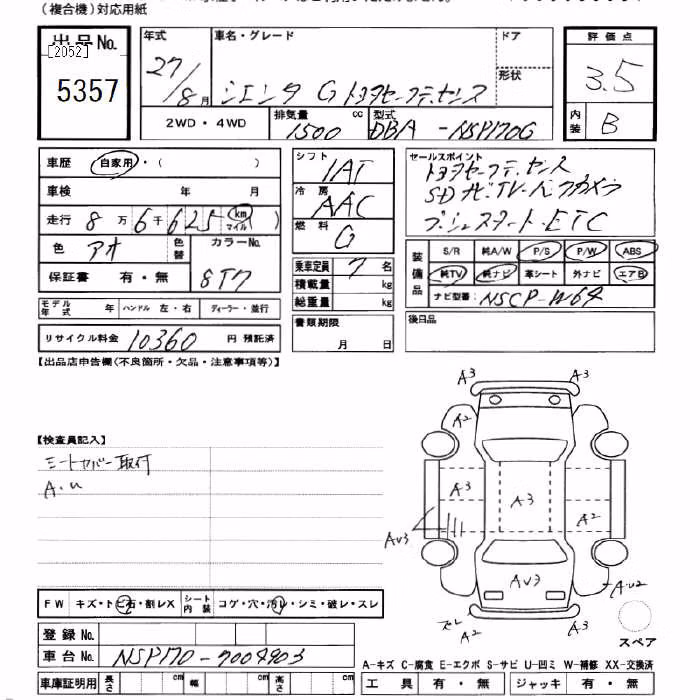 (複合機)対応用紙
出品No.
[2052]
5357
年式
27/8月
車名・グレード
シエンタ G トヨタセーフティセンス
ドア
形状
2WD・4WD
排気量
1500 cc
型式
DBA-NSP170G
評価点
3.5
内装
B
車歴 自家用・( )
車検 年 月
走行 8万6千625 km マイル )
色 アオ
色替
カラーNo.
8T7
保証書 有・無
シフト
IAT
冷房
AAC
燃料
G
乗車定員 7名
積載量 kg
総重量 kg
セールスポイント
トヨタセーフティ.センス
SDナビ.TV.バックカメラ
プッシュスタート.ETC
装備品
S/R 純A/W P/S P/W ABS
純TV 純ナビ 革シート 外ナビ エアB
ナビ型番: NSCP-W64
モデル年式 年 ハンドル 左・右 ディーラー・並行
リサイクル料金 10360 円 預託済
書類期限
月 日
後日品
【出品店申告欄(不良箇所・欠品・注意事項等)】
【検査員記入】
シートカバー取付
A.U
A3
A3
A2
A3
A3
A2
AU3
AU3
A.U2
ズレ
A2
A3
スペア
FW キズ・トビ石・割レX
シート内装 コゲ・穴・汚レ・シミ・破レ・スレ
登録No.
車台No. NSP170-7004903
車庫証明用 長さ cm 幅 cm 高さ cm
A-キズ C-腐食 E-エクボ S-サビ U-凹ミ W-補修 XX-交換済
工具 有・無 ジャッキ 有・無